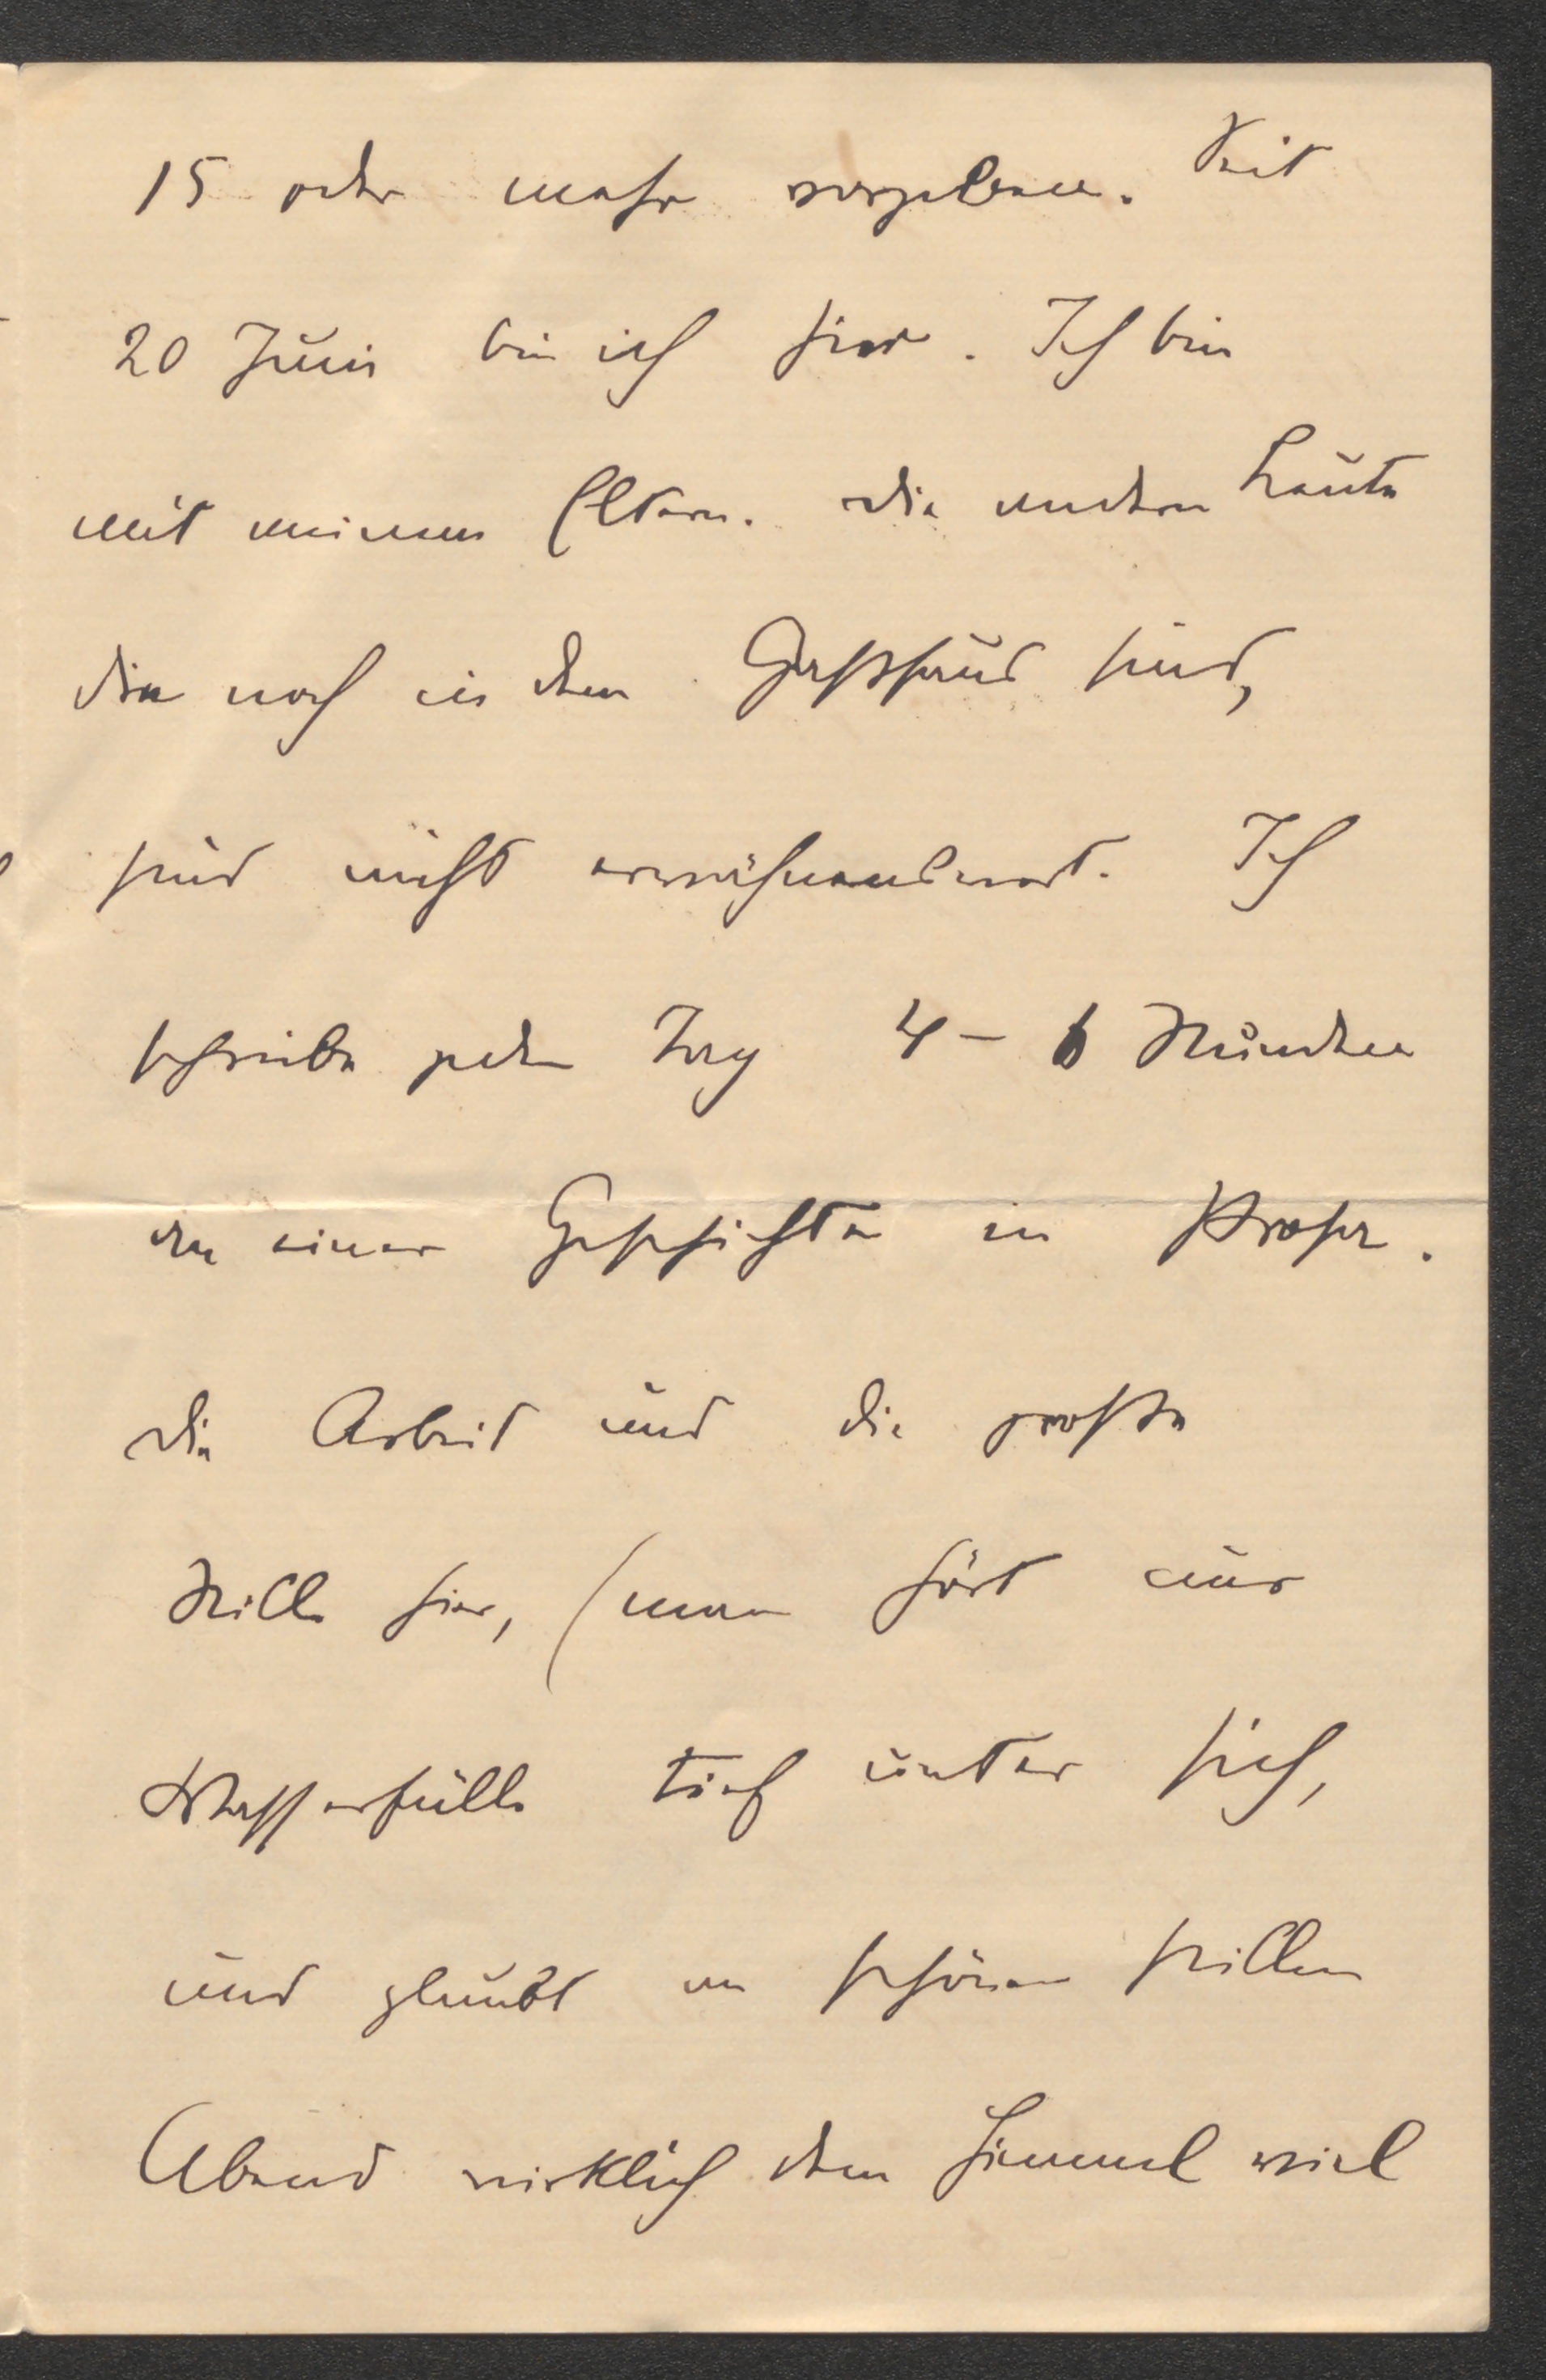 15 oder mehr vergeben. Seit
20 Juni bin ich hier. Ich bin
mit meinen Eltern. Die andern Leute
die noch in dem Gasthaus sind,
sind nicht erwähnenswert. Ich
schreibe jeden Tag 4 – 6 Stunden
an einer Geschichte in Prosa.
Die Arbeit und die große
Stille hier, (man hört nur
Wasserfälle tief unter sich,
und glaubt an schönen stillen
Abend wirklich dem Himmel viel